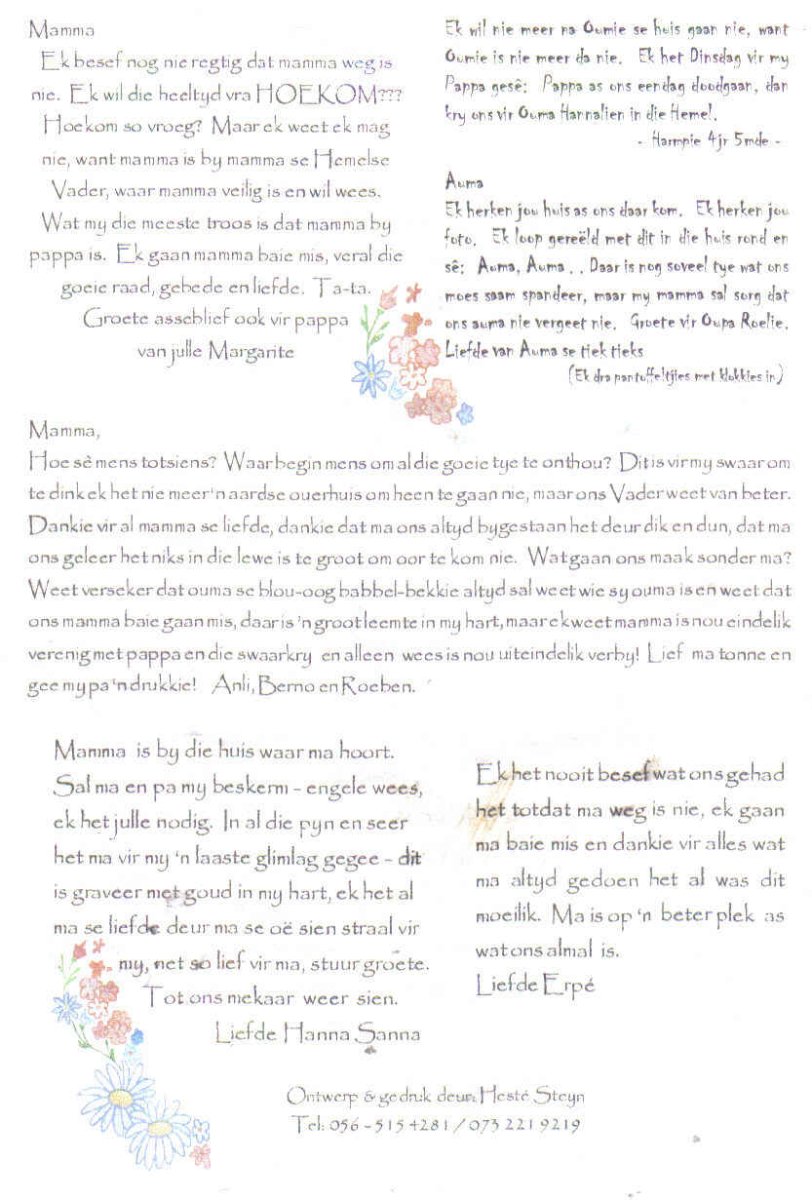 Mamma
Ek besef nog nie regtig dat mamma weg is
nie. Ek wil die heeltyd vra HOEKOM???
Hoekom so vroeg? Maar ek weet ek mag
nie, want mamma is by mamma se Hemelse
Vader, waar mamma veilig is en wil wees.
Wat my die meeste troos is dat mamma by
pappa is. Ek gaan mamma baie mis, veral die
goeie raad, gebede en liefde. Ta-ta.
Groete asseblief ook vir pappa
van julle Margarite
Ek wil nie meer na Oumie se huis gaan nie, want
Oumie is nie meer da nie. Ek het Dinsdag vir my
Pappa gesê: Pappa as ons eendag doodgaan, dan
kry ons vir Ouma Hannalien in die Hemel.
- Harmnie 4jr 5mde -
Auma
Ek herken jou huis as ons daar kom. Ek herken jou
foto. Ek loop gereëld met dit in die huis rond en
sê: Auma, Auma . . Daar is nog soveel tye wat ons
moes saam spandeer, maar my mamma sal sorg dat
ons auma nie vergeet nie. Groete vir Oupa Roelie.
Liefde van Auma se tiek tieks
(Ek dra pantoffeltjies met klokkies in)
Mamma,
Hoe sê mens totsiens? Waar begin mens om al die goeie tye te onthou? Dit is vir my swaar om
te dink ek het nie meer 'n aardse ouerhuis om heen te gaan nie, maar ons Vader weet van beter.
Dankie vir al mamma se liefde, dankie dat ma ons altyd bygestaan het deur dik en dun, dat ma
ons geleer het niks in die lewe is te groot om oor te kom nie. Wat gaan ons maak sonder ma?
Weet verseker dat ouma se blou-oog babbel-bekkie altyd sal weet wie sy ouma is en weet dat
ons mamma baie gaan mis, daar is 'n groot leemte in my hart, maar ek weet mamma is nou eindelik
verenig met pappa en die swaarkry en alleen wees is nou uiteindelik verby! Lief ma tonne en
gee my pa 'n drukkie! Anli, Berno en Roeben.
Mamma is by die huis waar ma hoort.
Sal ma en pa my beskerm - engele wees,
ek het julle nodig. In al die pyn en seer
het ma vir my 'n laaste glimlag gegee - dit
is graveer met goud in my hart, ek het al
ma se liefde deur ma se oë sien straal vir
my, net so lief vir ma, stuur groete.
Tot ons mekaar weer sien.
Liefde Hanna Sanna
Ek het nooit besef wat ons gehad
het totdat ma weg is nie, ek gaan
ma baie mis en dankie vir alles wat
ma altyd gedoen het al was dit
moeilik. Ma is op 'n beter plek as
wat ons almal is.
Liefde Erpé
Ontwerp & gedruk deur: Hesté Steyn
Tel: 056 - 515 4281 / 073 221 9219